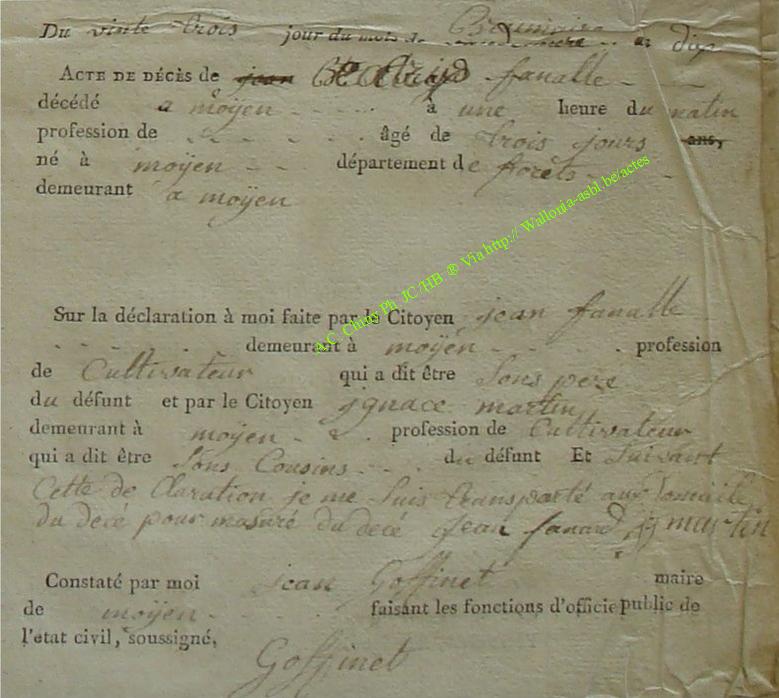 Du vinte trois jour du mois de Brumaire an dix
ACTE DE DÉCÈS de jean fanalle
décédé a moyen à une heure du matin
profession de âgé de trois jours ans,
né à moÿen département de forêts
demeurant a moÿen
Sur la déclaration à moi faite par le Citoyen jean fanalle
demeurant à moÿen profession
de Cultivateur qui a dit être Sons pere
du défunt et par le Citoyen jgnace martin
demeurant à moÿen profession de Cultivateur
qui a dit être Sons Cousins du défunt Et Suivant
Cette de Claration je me Suis transporté au Domicile
du decé pour masuré du decé jean fanard jg martin
Constaté par moi jean Goffinet maire
de moÿen faisant les fonctions d'officie public de
l'etat civil, soussigné,
Goffinet
A.C Chiny Ph JC/HB ® Via http:// Wallonia-asbl.be/actes